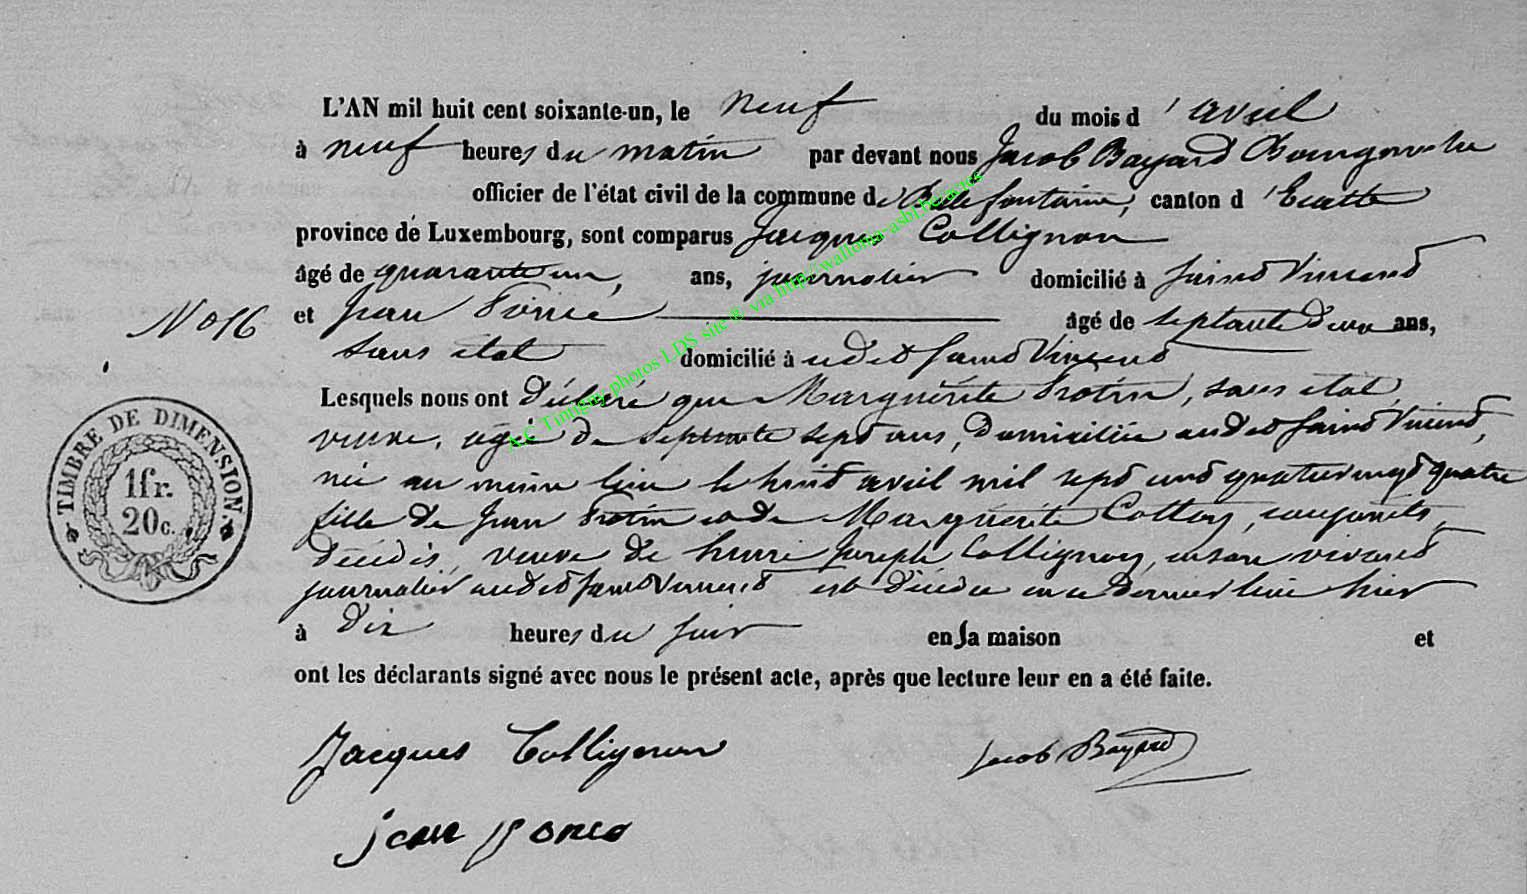 L'AN mil huit cent soixante-un, le neuf du mois d'avril
à neuf heures du matin par devant nous Jacob Bayard Bourgmestre
officier de l'état civil de la commune de Bellefontaine, canton d'Etalle
province de Luxembourg, sont comparus Jacques Collignon
âgé de quarante un, ans, journalier domicilié à Saint Vincent
No 16
et Jean âgé de septante deux ans,
sans état domicilié à udit Saint Vincent
Lesquels nous ont déclaré que Marguérite Frotin, sans état,
veuve, agée de septante sept ans, domiciliée audit Saint Vincent,
née au même lieu le huit avril mil sept cent quatrevingt quatre
fille de Jean Frotin et de Marguérite Cotton, conjoints,
décédés, veuve de henri Joseph Collignon, en son vivant
journalier audit Saint Vincent est décédée en ce dernier lieu hier
à dix heures du soir en sa maison et
ont les déclarants signé avec nous le présent acte, après que lecture leur en a été faite.
TIMBRE DE DIMENSION
1fr.
20c.
Jacques Collignon
Jacob Bayard
jean
A.C Tintigny photos LDS site ® via http://wallonia-asbl.be/actes